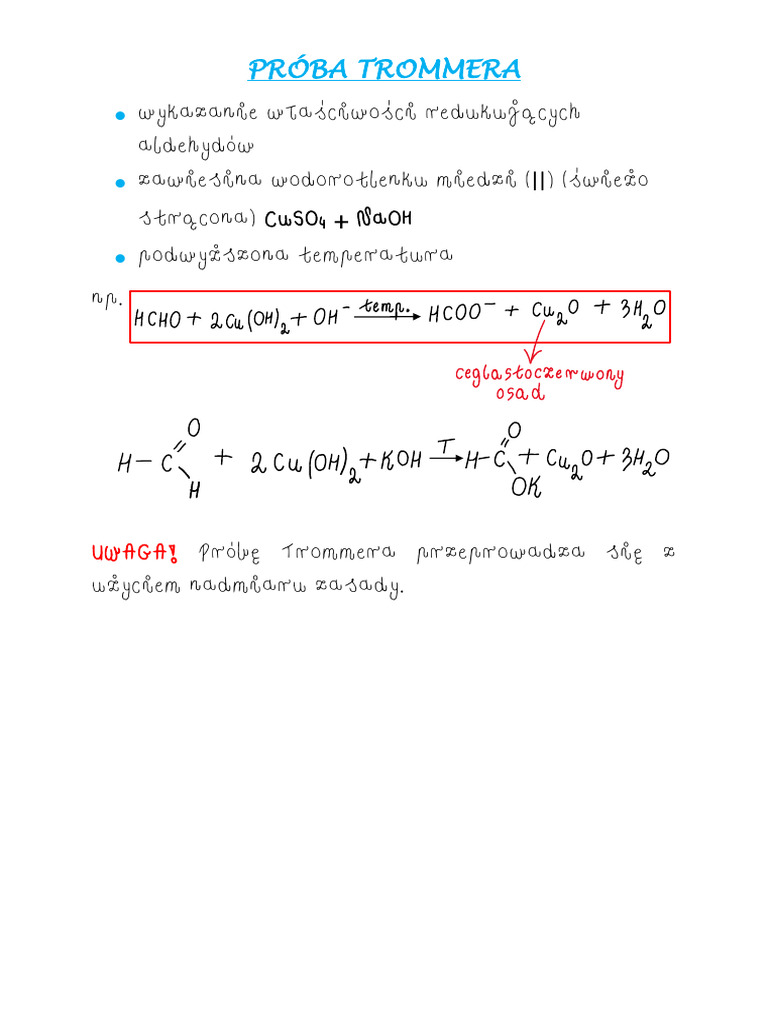 PRÓBA TROMMERA
• wykazanie właściwości redukujących
aldehydów
• zawiesina wodorotlenku miedzi (II) (świeżo
strącona) CuSO₄ + NaOH
• podwyższona temperatura
np. HCHO + 2Cu(OH)₂ + OH⁻ temp. → HCOO⁻ + Cu₂O + 3H₂O
ceglastoczerwony
osad
O O
H – C + 2Cu(OH)₂ + KOH T → H – C + Cu₂O + 3H₂O
H OK
UWAGA! Próbę Trommera przeprowadza się z
użyciem nadmiaru zasady.